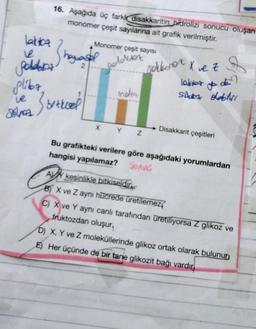 16. Aşağıda üç farklı disakkaritin hidrolizi sonucu oluşan
monomer çeşit sayılarına ait grafik verilmiştir.
Monomer çeşit sayısı
laktoz
ve
hayvansal
X ve Z
laktoz ya da
2
1
ve
bitkisel
X Y Z
Disakkarit çeşitleri
Bu grafikteki verilere göre aşağıdaki yorumlardan
hangisi yapılamaz?
A) Y kesinlikle bitkiseldir.
B) X ve Z aynı hücrede üretilemez.
C) X ve Y aynı canlı tarafından üretiliyorsa Z glikoz ve
fruktozdan oluşur.
D) X, Y ve Z moleküllerinde glikoz ortak olarak bulunur.
E) Her üçünde de bir tane glikozit bağı vardır.